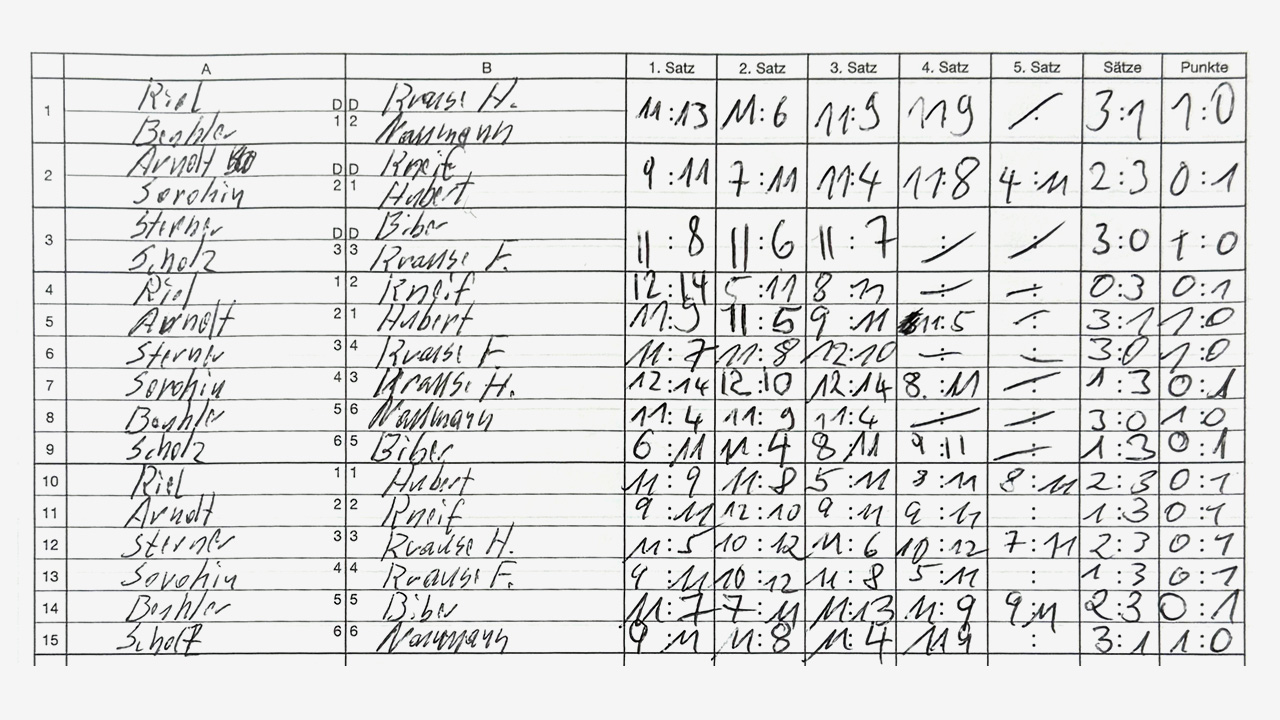 A B 1. Satz 2. Satz 3. Satz 4. Satz 5. Satz Sätze Punkte
1 Riel D D Krause H. 11:13 11:6 11:9 11 9 ./. 3:1 1:0
Beshler 1 2 Naumann
2 Arndt D D Kneif 9:11 7:11 11:4 11:8 4:11 2:3 0:1
Sorohin 2 1 Hubert
3 Sterner D D Biber 11:8 11:6 11:7 ./. ./. 3:0 1:0
Scholz 3 3 Krause F.
4 Riel 1 2 Kneif 12:14 5:11 8:11 ./. ./. 0:3 0:1
5 Arndt 2 1 Hubert 11:9 11:5 9:11 11:5 ./. 3:1 1:0
6 Sterner 3 4 Krause F 11:7 11:8 12:10 ./. ./. 3:0 1:0
7 Sorohin 4 3 Krause H. 12:14 12:10 12:14 8:11 ./. 1:3 0:1
8 Beshler 5 6 Naumann 11:4 11:9 11:4 ./. ./. 3:0 1:0
9 Scholz 6 5 Biber 6:11 11:4 8:11 9:11 ./. 1:3 0:1
10 Riel 1 1 Hubert 11:9 11:8 5:11 8:11 8:11 2:3 0:1
11 Arndt 2 2 Kneif 9:11 12:10 9:11 9:11 : 1:3 0:1
12 Sterner 3 3 Krause H. 11:5 10:12 11:6 10:12 7:11 2:3 0:1
13 Sorohin 4 4 Krause F. 9:11 10:12 11:8 5:11 : 1:3 0:1
14 Beshler 5 5 Biber 11:7 7:11 11:13 11:9 9:11 2:3 0:1
15 Scholz 6 6 Naumann 9:11 11:8 11:4 11 9 : 3:1 1:0